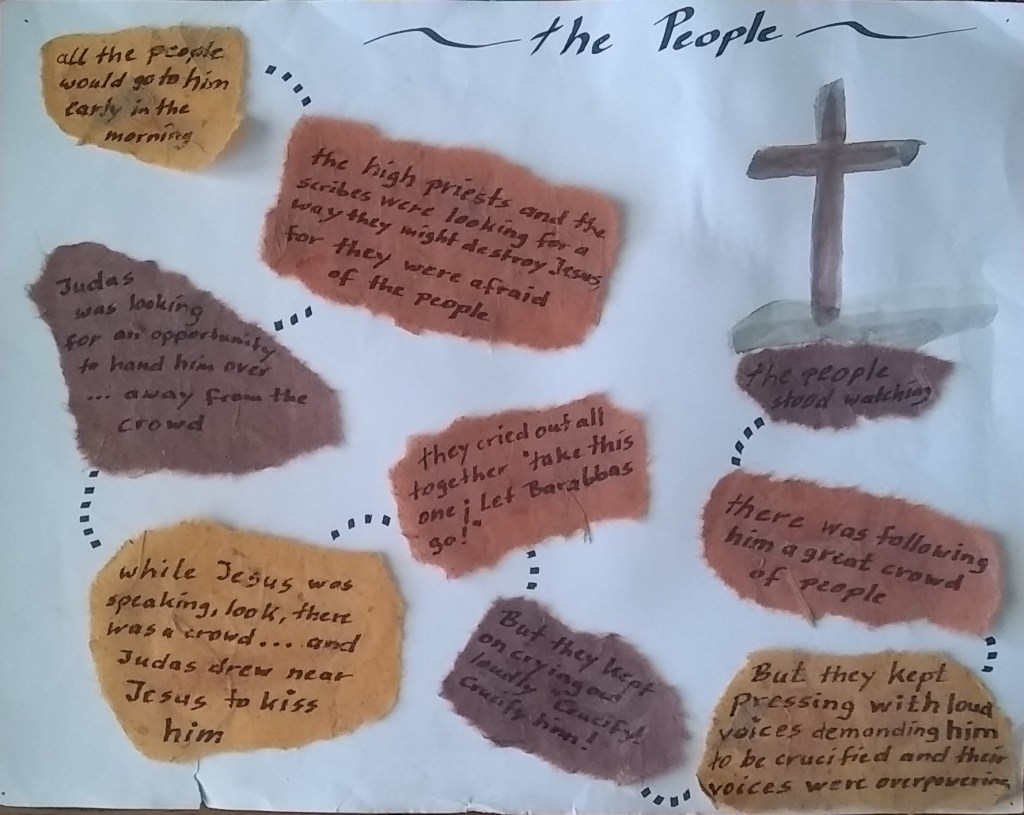 the People
all the people
would go to him
early in the
morning
the high priests and the
scribes were looking for a
way they might destroy Jesus,
for they were afraid
of the people
Judas
was looking
for an opportunity
to hand him over
... away from the
crowd
while Jesus was
speaking, look, there
was a crowd... and
Judas drew near
Jesus to kiss
him
they cried out all
together "take this
one; Let Barabbas
go!"
But they kept
on crying out
loudly "Crucify!
Crucify him!
But they kept
pressing with loud
voices demanding him
to be crucified and their
voices were overpowering
there was following
him a great crowd
of people
the people
stood watching